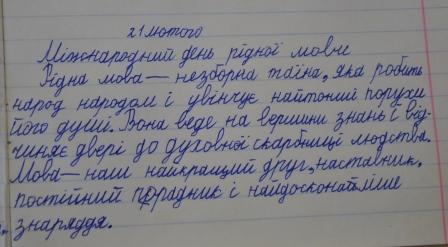 21 лютого
Міжнародний день рідної мови
Рідна мова — незборна таїна, яка робить
народ народом і увінчує найтонші порухи
його душі. Вона веде на вершини знань і від-
чиняє двері до духовної скарбниці людства.
Мова — наш найкращий друг, наставник,
постійний порадник і найдосконаліше
знаряддя.